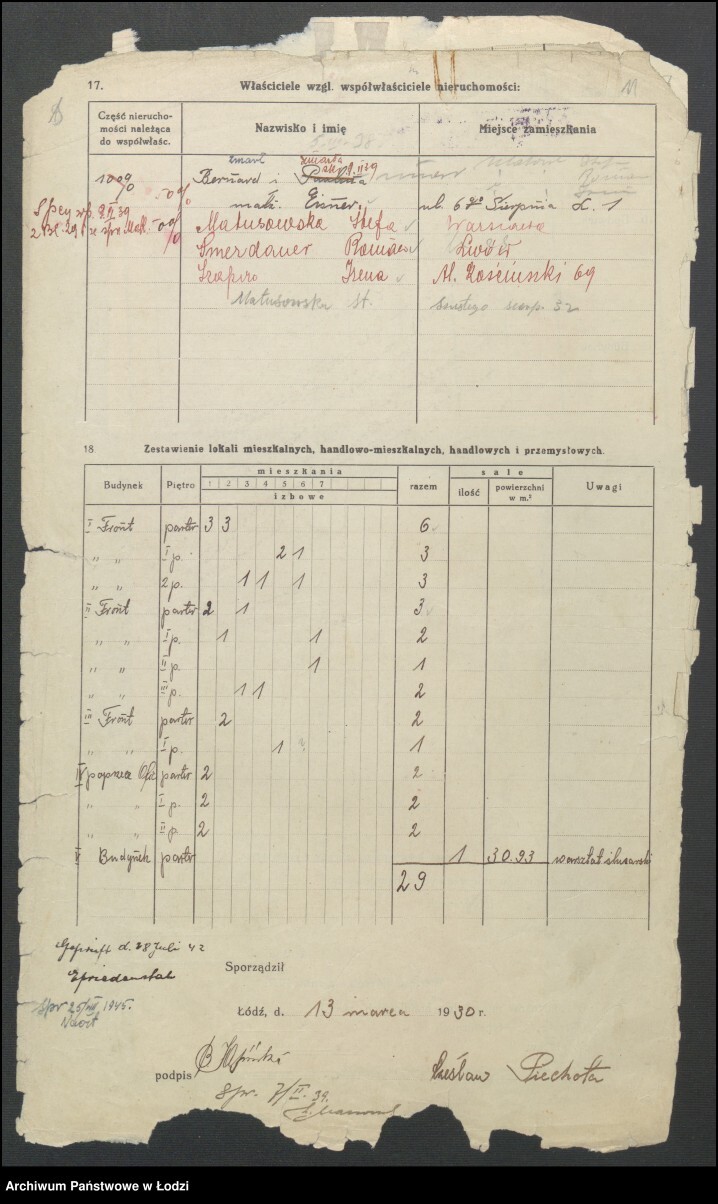 17. Właściciele wzgl. współwłaściciele nieruchomości:
Część nierucho-
mości należąca
do współwłaśc.
Nazwisko i imię
Miejsce zamieszkania
zmarł zmarła
100% Bernard i Paulina
małż. Eisner ul. 6go Sierpnia L. 1
Matusowska Stefa Warszawa
Smerdauer Roman Lwów
Szapiro Irena Al. Kościuszki 69
Matusowska St.
18 Zestawienie lokali mieszkalnych, handlowo-mieszkalnych, handlowych i przemysłowych.
Budynek Piętro mieszkania razem sale Uwagi
1 2 3 4 5 6 7 ilość powierzchni
w m.²
izbowe
I Front parter 3 3 6
„ „ I p. 2 1 3
„ „ 2 p. 1 1 1 3
II Front parter 2 1 3
„ „ I p. 1 1 2
„ „ II p. 1 1
„ „ III p. 1 1 2
III Front parter 2 2
„ „ I p. 1 1
IV poprzecz Ofic parter 2 2
„ „ I p. 2 2
„ „ II p. 2 2
V Budynek parter 1 30.93 warsztat ślusarski
29
Geprüft d. 28 Juli 42
Sporządził
Spr 25/VII 1945.
Łódź, d. 13 marca 1930 r.
podpis Czesław Piechota
Spr. 7/II. 39.
Archiwum Państwowe w Łodzi